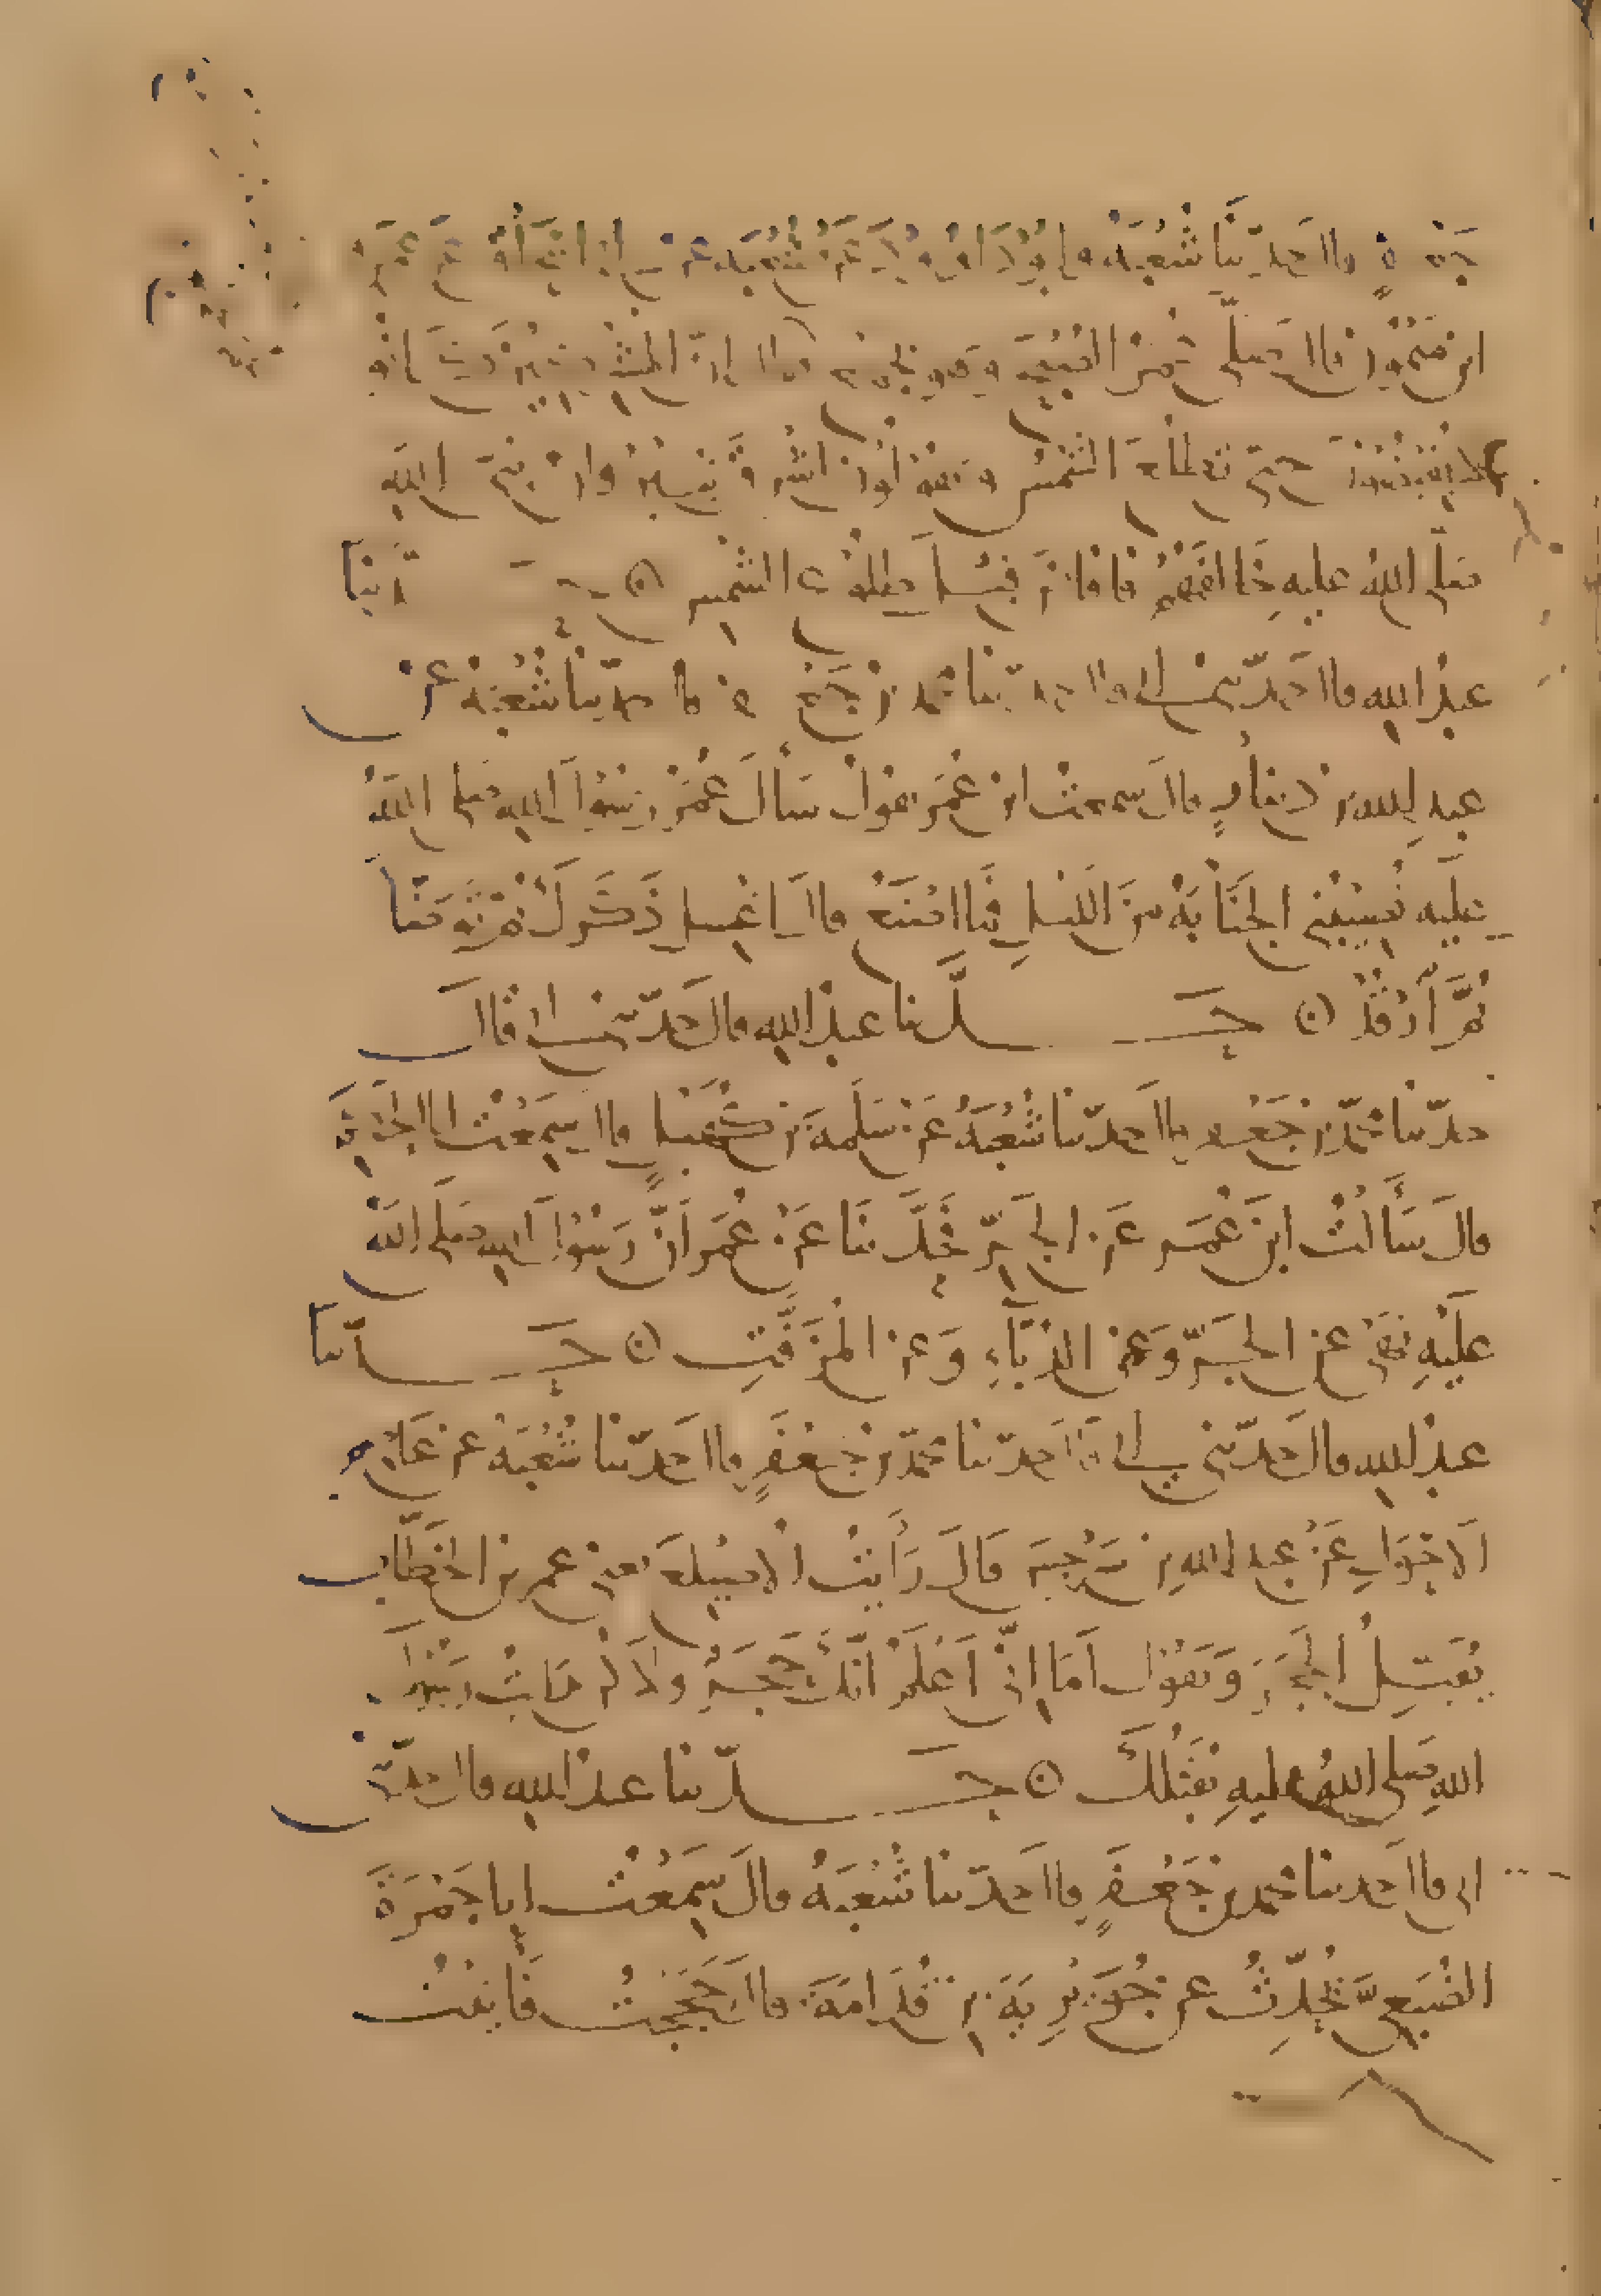 جعفر قال حدثنا شعبة وابو داود عن شعبة عن ابي اسحاق عن عمرو
ابن ميمون قال صلى عمر الصبح وهو بجمع قال إن المشركين كانوا
لا يفيضون حتى تطلع الشمس ويقولون اشرق ثبير وان نبي الله
صلى الله عليه خالفهم فافاض قبل طلوع الشمس
عبد الله قال حدثني ابي قال حدثنا محمد بن جعفر قال حدثنا شعبة عن
عبد الله بن دينار قال سمعت ابن عمر يقول سأل عمر رسول الله صلى الله
عليه تصيبني الجنابة من الليل فما اصنع قال اغسل ذكرك ثم توضأ
ثم أرقد حدثنا عبد الله قال حدثني ابي قال
حدثنا محمد بن جعفر قال حدثنا شعبة عن سلمة بن كهيل قال سمعت ابا الحكم
قال سألت ابن عمر عن الجر فحدثنا عن عمر أن رسول الله صلى الله
عليه نهى عن الجر وعن الدباء وعن المزفت حدثنا
عبد الله قال حدثني ابي قال حدثنا محمد بن جعفر قال حدثنا شعبة عن عاصم
الاحول عن عبد الله بن سرجس قال رأيت الاصيلع يعني عمر بن الخطاب
يقبل الحجر ويقول اما اني اعلم انك حجر ولكن رأيت رسول
الله صلى الله عليه يقبلك حدثنا عبد الله قال حدثني
ابي قال حدثنا محمد بن جعفر قال حدثنا شعبة قال سمعت ابا جمرة
الضبعي يحدث عن جويرية بن قدامة قال حججت فأتيت